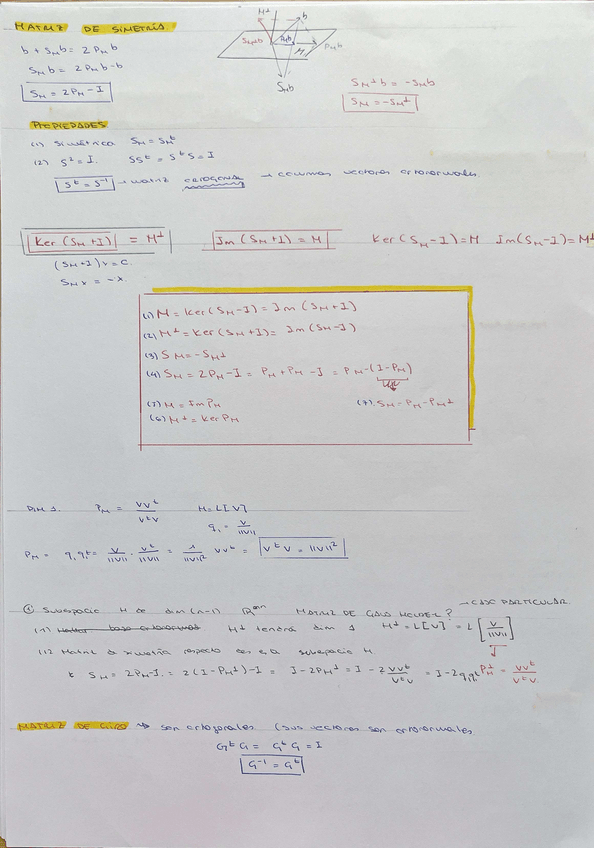 MATRIZ DE SIMETRÍA
M⊥
b
S_M⊥b
P_Mb
M
S_Mb
b + S_Mb = 2P_Mb
S_Mb = 2P_Mb - b
S_M = 2P_M - I
S_M⊥b = -S_Mb
S_M = -S_M⊥
PROPIEDADES
(1) Simétrica S_M = S_M^t
(2) S² = I. SS^t = S^tS = I
S^t = S^-1 → matriz ORTOGONAL → columnas vectores ortonormales.
Ker(S_M+I) = M⊥ Im(S_M+I) = M Ker(S_M-I)=M Im(S_M-I)=M⊥
(S_M+I)v = 0
S_Mx = -x
(1) M = Ker(S_M-I) = Im(S_M+I)
(2) M⊥ = Ker(S_M+I) = Im(S_M-I)
(3) S_M = -S_M⊥
(4) S_M = 2P_M-I = P_M+P_M-I = P_M-(I-P_M)
(5) M = Im P_M (7) S_M = P_M - P_M⊥
(6) M⊥ = Ker P_M
DIM 1. P_M = vv^t / v^tv M = L[v]
q₁ = v / ||v||
P_M = q₁q₁^t = v/||v|| · v^t/||v|| = 1/||v||² vv^t = v^tv = ||v||²
① Subespacio M de dim (n-1) MATRIZ DE → CASO PARTICULAR.
(1) M⊥ tendrá dim 1 M⊥ = L[v] = L[v/||v||]
(2) Matriz de simetría respecto subespacio M
* S_M = 2P_M-I = 2(I-P_M⊥)-I = I-2P_M⊥ = I-2 vv^t/v^tv = I-2q₁q₁^t P_M⊥ = vv^t/v^tv
MATRIZ DE GIRO → son ortogonales (sus vectores son ortonormales
G^tG = G^tG = I
G^-1 = G^t